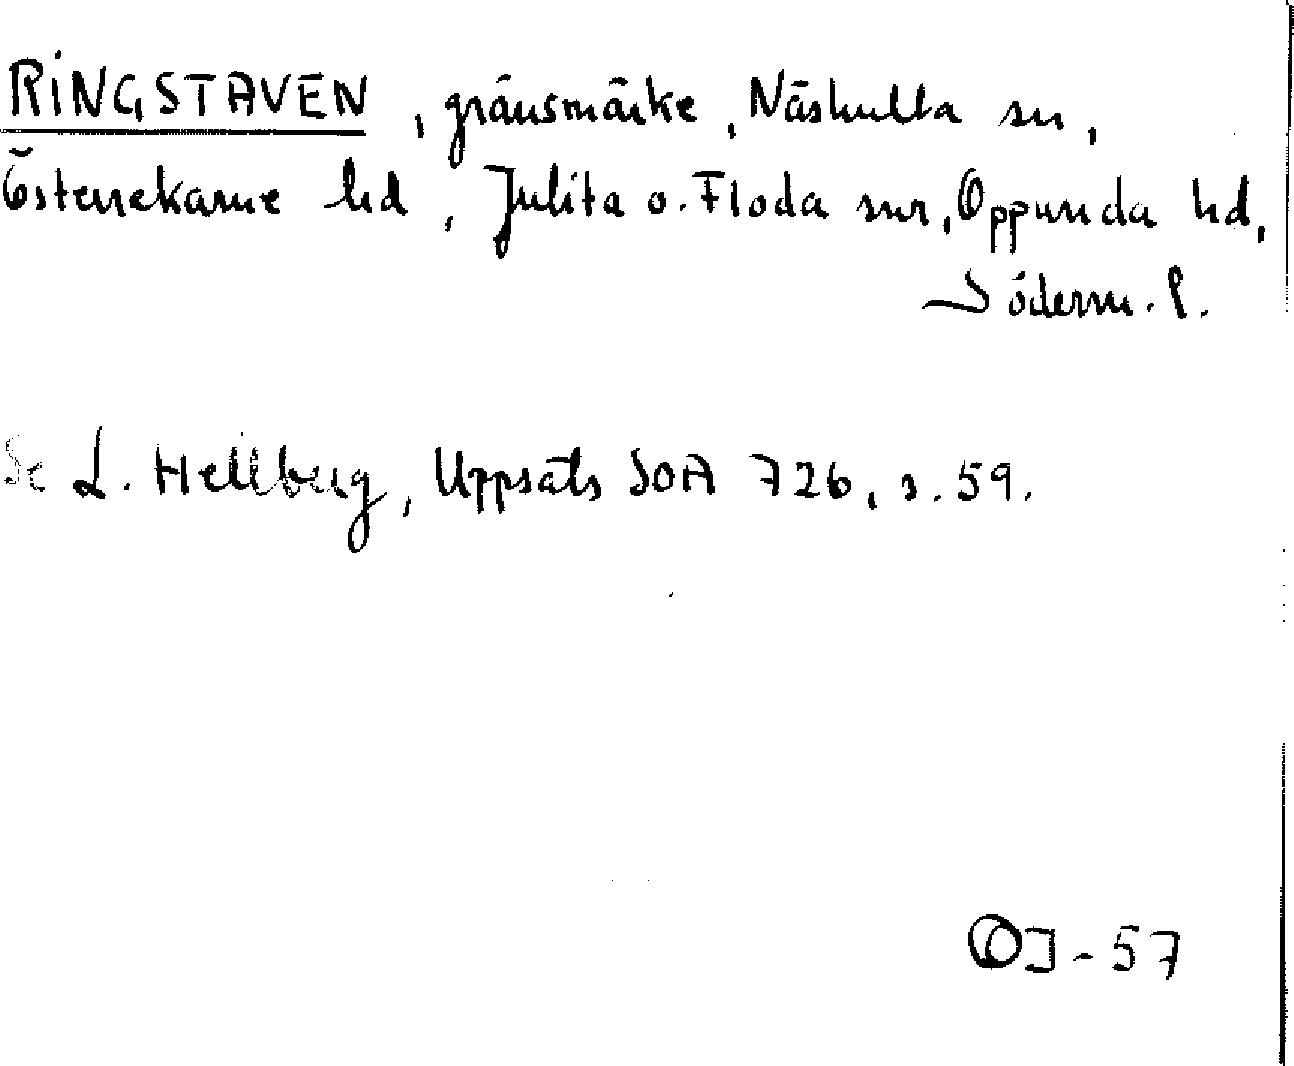 RINGSTAVEN, gränsmärke, Näshulta sn,
Österrekarne hd, Julita o. Floda snr, Oppunda hd,
Söderm. l.
Se L. Hellberg, Uppsats SOA 726, s. 59.
OJ-57